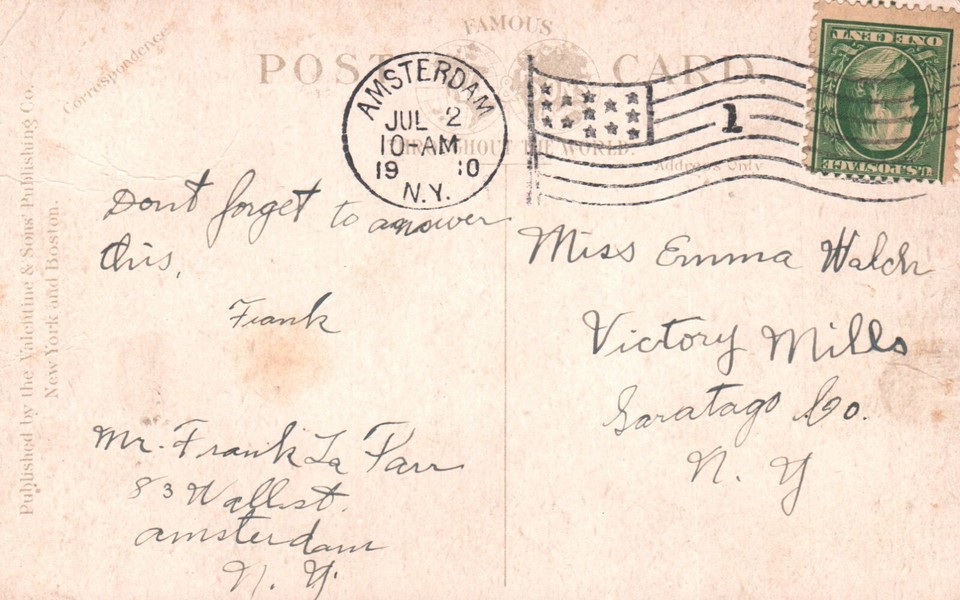 FAMOUS
POST CARD.
THROUGHOUT THE WORLD.
Correspondence
Address Only
AMSTERDAM
JUL 2
10-AM
19 10
N.Y.
1
U.S. POSTAGE
ONE CENT
Dont forget to answer
this,
Frank
Mr. Frank La Parr
83 Wall st.
amsterdam
N. Y.
Miss Emma Walch
Victory Mills
Saratago Co.
N. Y
Published by the Valentine & Sons' Publishing Co.
New York and Boston.